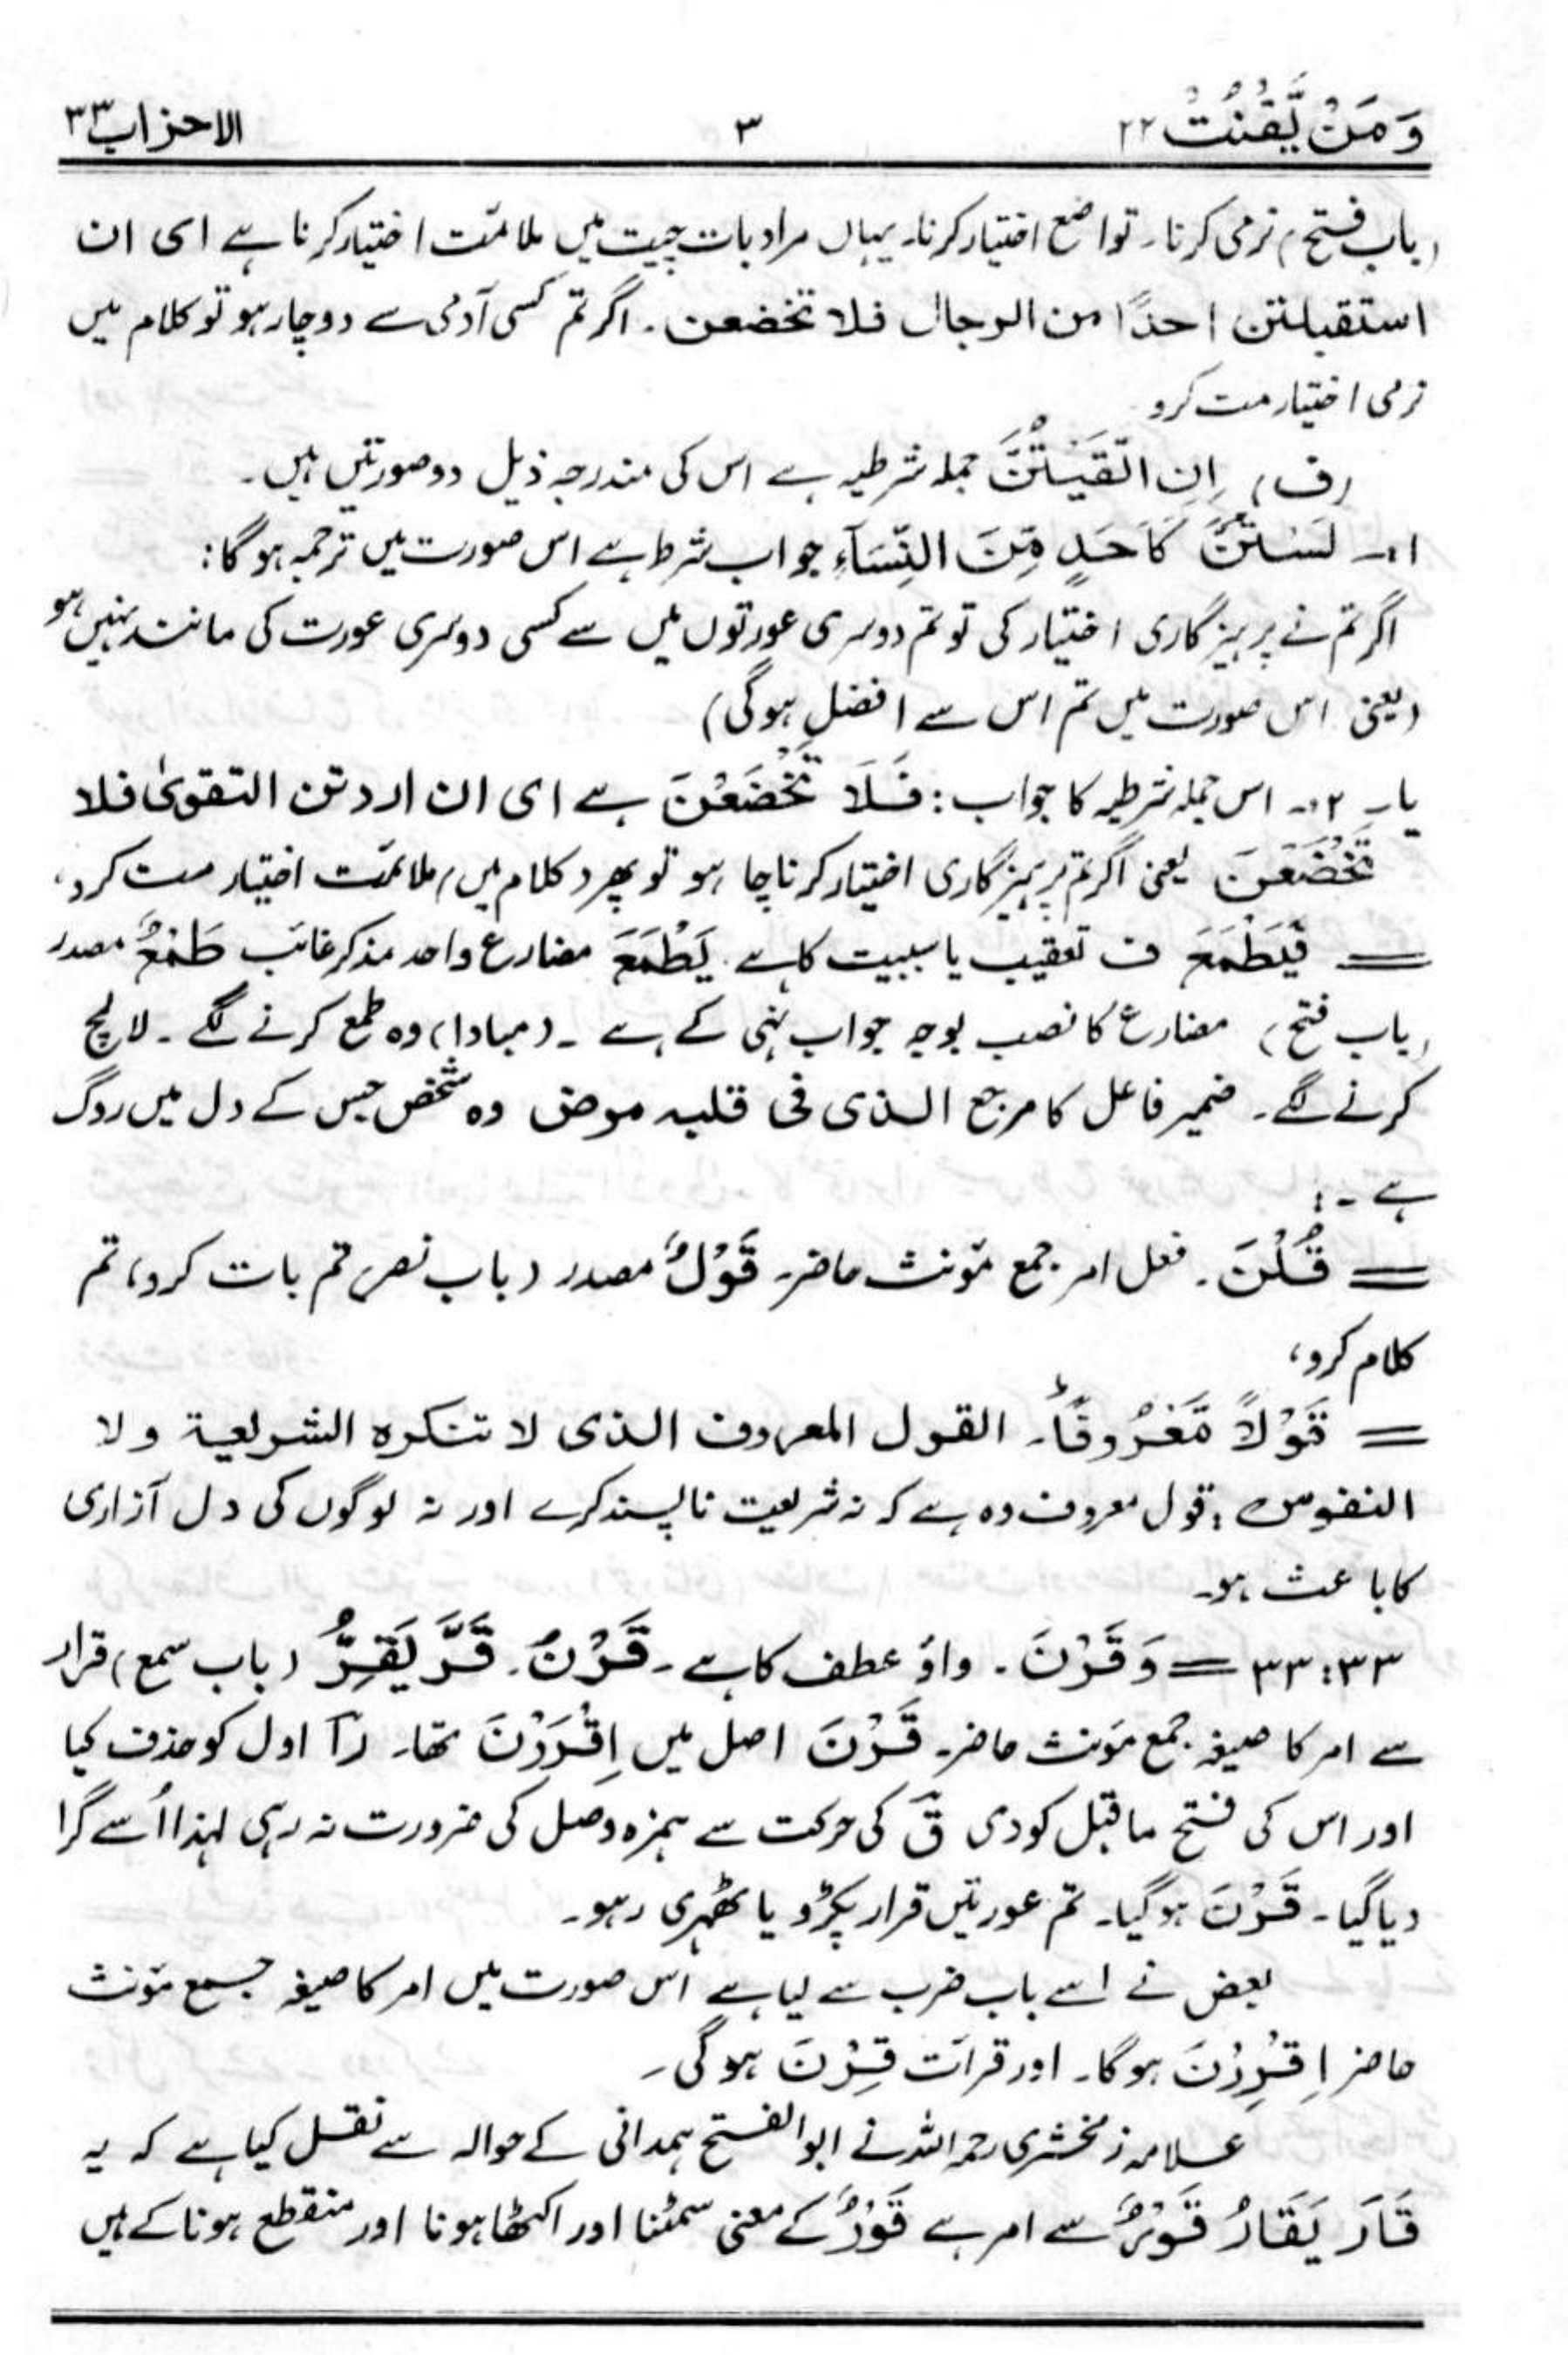 وَمَنْ يَّقْنُتْ ٢٢ ٣ الاحزاب ٣٣
(باب فتح) نرمی کرنا۔ تواضع اختیار کرنا۔ یہاں مراد بات چیت میں ملائمت اختیار کرنا ہے ای ان
استقبلتن احدًا من الرجال فلا تخضعن۔ اگر تم کسی آدمی سے دوچار ہو تو کلام میں
نرمی اختیار مت کرو۔
(ف) اِنِ اتَّقَیْتُنَّ جملہ شرطیہ ہے اس کی مندرجہ ذیل دو صورتیں ہیں۔
١۔ لَسْتُنَّ کَاَحَدٍ مِّنَ النِّسَآءِ جواب شرط ہے اس صورت میں ترجمہ ہوگا:
اگر تم نے پرہیزگاری اختیار کی تو تم دوسری عورتوں میں سے کسی دوسری عورت کی مانند نہیں ہو
(یعنی اس صورت میں تم اس سے افضل ہوگی)
یا۔ ٢۔ اس جملہ شرطیہ کا جواب: فَلَا تَخْضَعْنَ ہے ای ان اردتن التقویٰ فلا
تَخْضَعْنَ یعنی اگر تم پرہیزگاری اختیار کرنا چاہو تو پھر (کلام میں) ملائمت اختیار مت کرو،
= فَیَطْمَعَ ف تعقیب یا سببیت کا ہے۔ یَطْمَعَ مضارع واحد مذکر غائب طَمْعٌ مصدر
(باب فتح) مضارع کا نصب بوجہ جواب نہی کے ہے۔ (مبادا) وہ طمع کرنے لگے۔ لالچ
کرنے لگے۔ ضمیر فاعل کا مرجع الذی فی قلبہ مرض وہ شخص جس کے دل میں روگ
ہے۔:
= قُلْنَ۔ فعل امر جمع مؤنث حاضر۔ قَوْلٌ مصدر (باب نصر) تم بات کرو، تم
کلام کرو،
= قَوْلًا مَّعْرُوفًا۔ القول المعروف الذی لا تنکرہ الشریعۃ ولا
النفوس: قول معروف وہ ہے کہ نہ شریعت ناپسند کرے اور نہ لوگوں کی دل آزاری
کا باعث ہو۔
٣٣:٣٣ = وَقَرْنَ۔ واؤ عطف کا ہے۔ قَرْنَ۔ قَرَّ یَقِرُّ (باب سمع) قرار
سے امر کا صیغہ جمع مؤنث حاضر۔ قَرْنَ اصل میں اِقْرَرْنَ تھا۔ رآ اول کو حذف کیا
اور اس کی فتح ماقبل کو دی ق کی حرکت سے ہمزہ وصل کی ضرورت نہ رہی لہذا اُسے گرا
دیا گیا۔ قَرْنَ ہوگیا۔ تم عورتیں قرار پکڑو یا ٹھہری رہو۔
بعض نے اسے باب ضرب سے لیا ہے اس صورت میں امر کا صیغہ جمع مؤنث
حاضر اِقْرِرْنَ ہوگا۔ اور قرات قِرْنَ ہوگی۔
علامہ زمخشری رحمہ اللہ نے ابوالفتح ہمدانی کے حوالہ سے نقل کیا ہے کہ یہ
قَارَ یَقَارُ قَوْرٌ سے امر ہے قَوْرٌ کے معنی سمٹنا اور اکٹھا ہونا اور منقطع ہونا کے ہیں